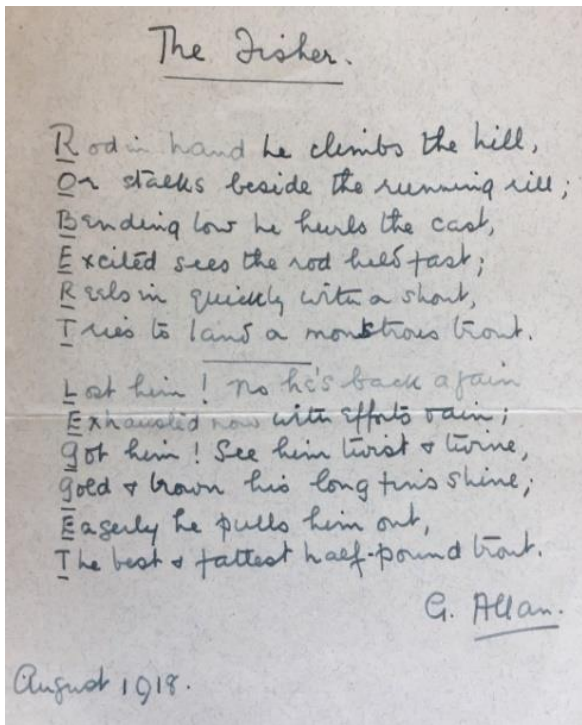 The Fisher.
Rod in hand he climbs the hill,
Or stalks beside the running rill;
Bending low he hurls the cast,
Excited sees the rod held fast;
Reels in quickly with a shout,
Tries to land a monstrous trout.
Lost him! No he's back again
Exhausted now with efforts vain;
Got him! See him twist & twine,
Gold & brown his long fins shine;
Eagerly he pulls him out,
The best & fattest half-pound trout.
G. Allan.
August 1918.